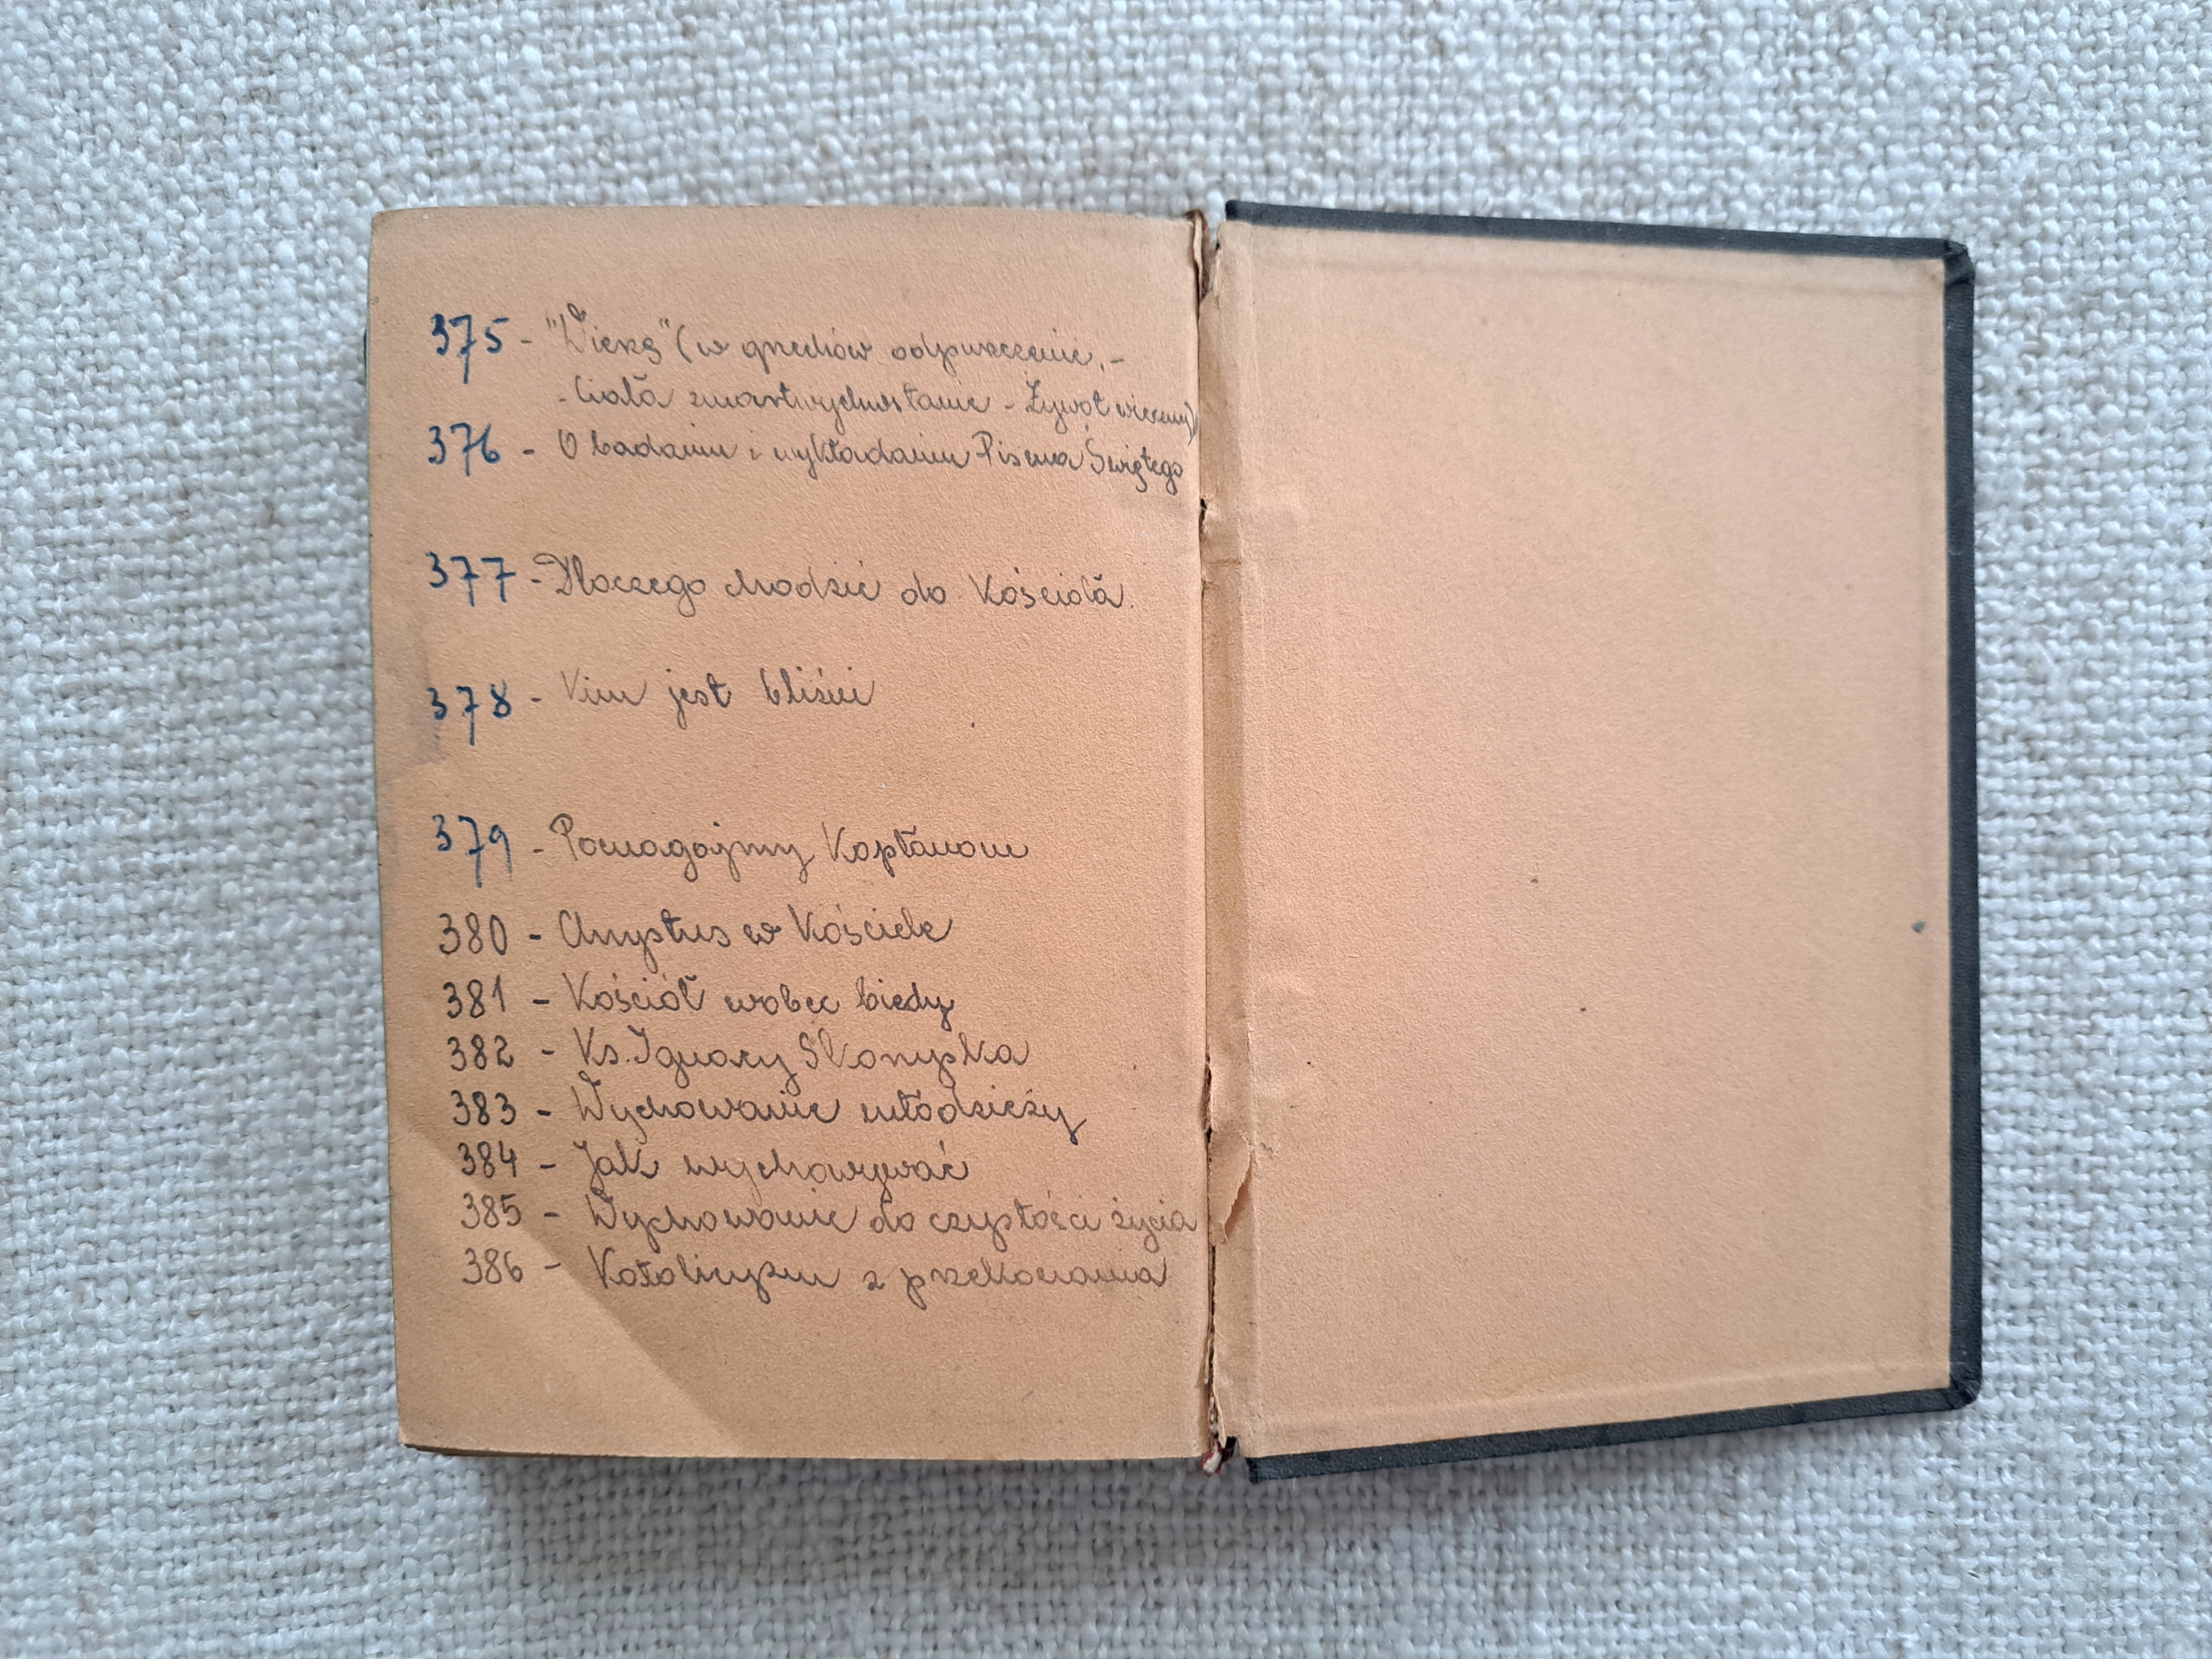 375 - "Wierzę" (w grzechów odpuszczenie, -
- Ciała zmartwychwstanie - Żywot wieczny)
376 - O badaniu i wykładaniu Pisma Świętego
377 - Dlaczego chodzić do Kościoła.
378 - Kim jest bliźni
379 - Pomagajmy Kapłanom
380 - Chrystus w Kościele
381 - Kościół wobec biedy
382 - Ks. Ignacy Skorupka
383 - Wychowanie młodzieży
384 - Jak wychowywać
385 - Wychowanie do czystości życia
386 - Katolicyzm z przekonania